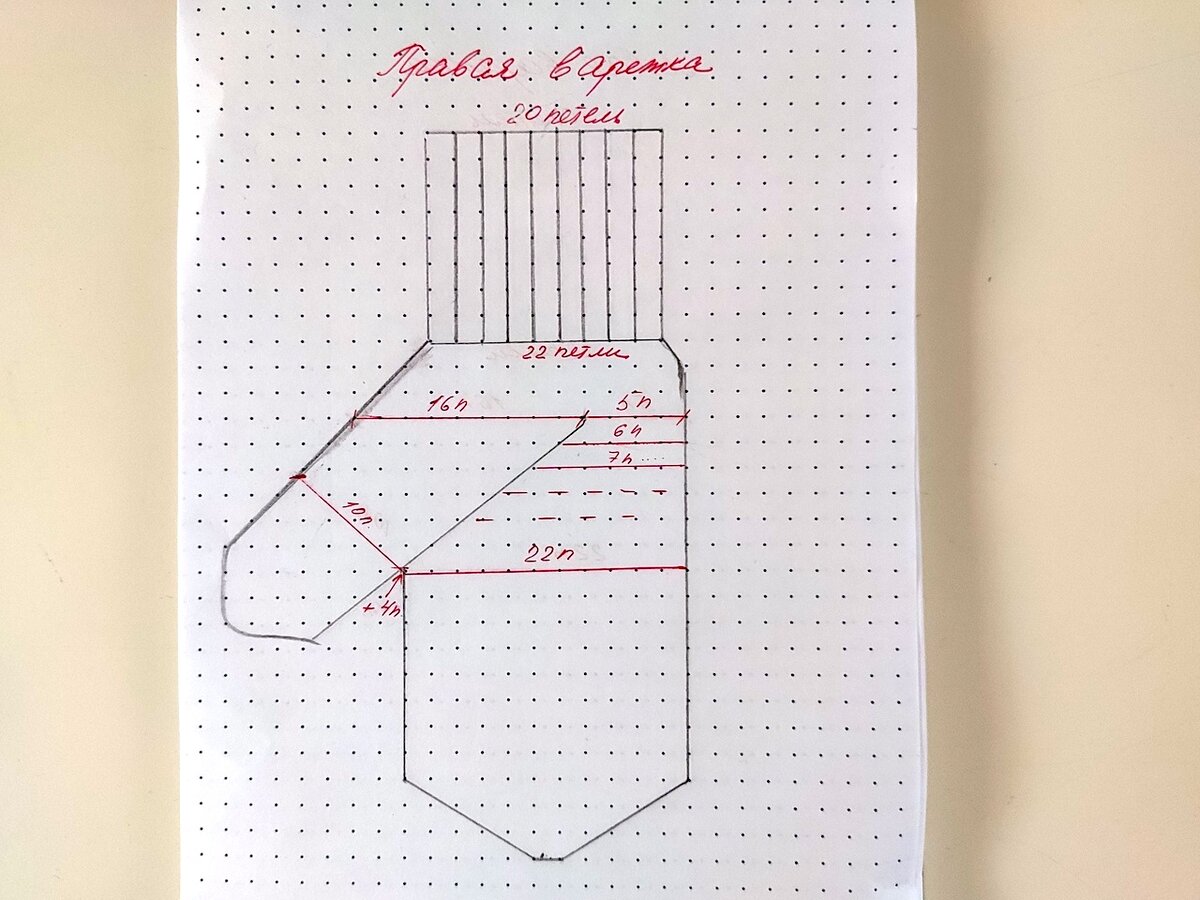 Правая варежка
20 петель
22 петли
16п 5п
6п
7п ....
10п.
22п
+ 4п